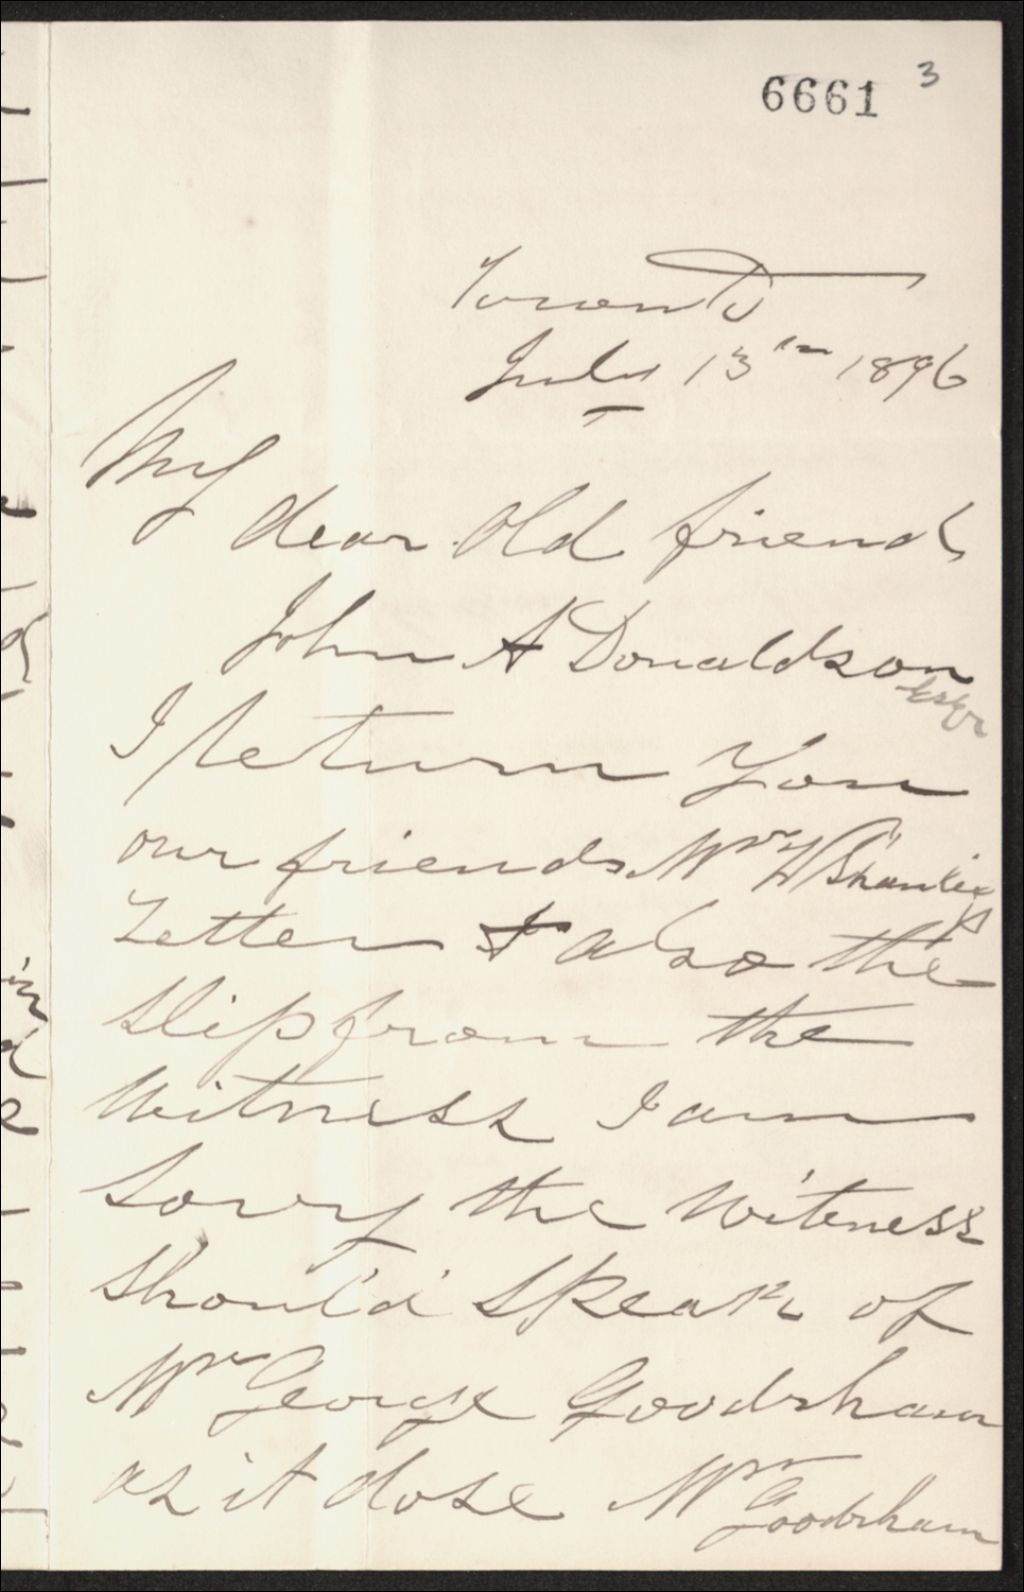 6661 3
Toronto
July 13th 1896
My
dear Old friend
John A Donaldson
Esqr
I Return You
our friends Mr W Shanly's
Letter & also the
slip from the
Witness I am
Sorry the Witness
should speak of
Mr George Goodrham
as it dose Mr Goodrham